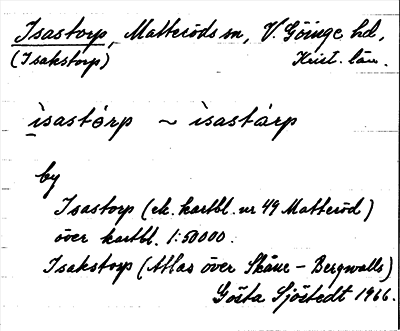 Isastorp, Matteröds sn, V. Göinge hd,
(Isakstorp) Krist. län.
ìsastórp ~ ìsastárp
by
Isastorp (ek. kartbl. nr 49 Matteröd)
över kartbl. 1:50000.
Isakstorp (Atlas över Skåne - Bergwalls)
Gösta Sjöstedt 1966.